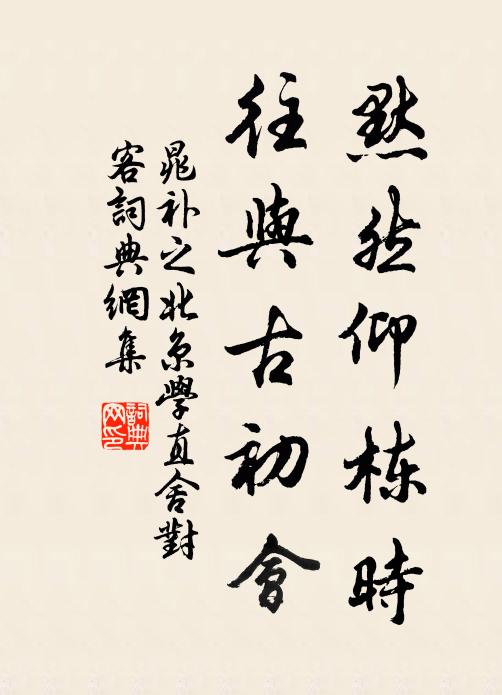 默然仰栋時
往與古初會
晁补之北京學直舍對
客詞典網集
詞典网印